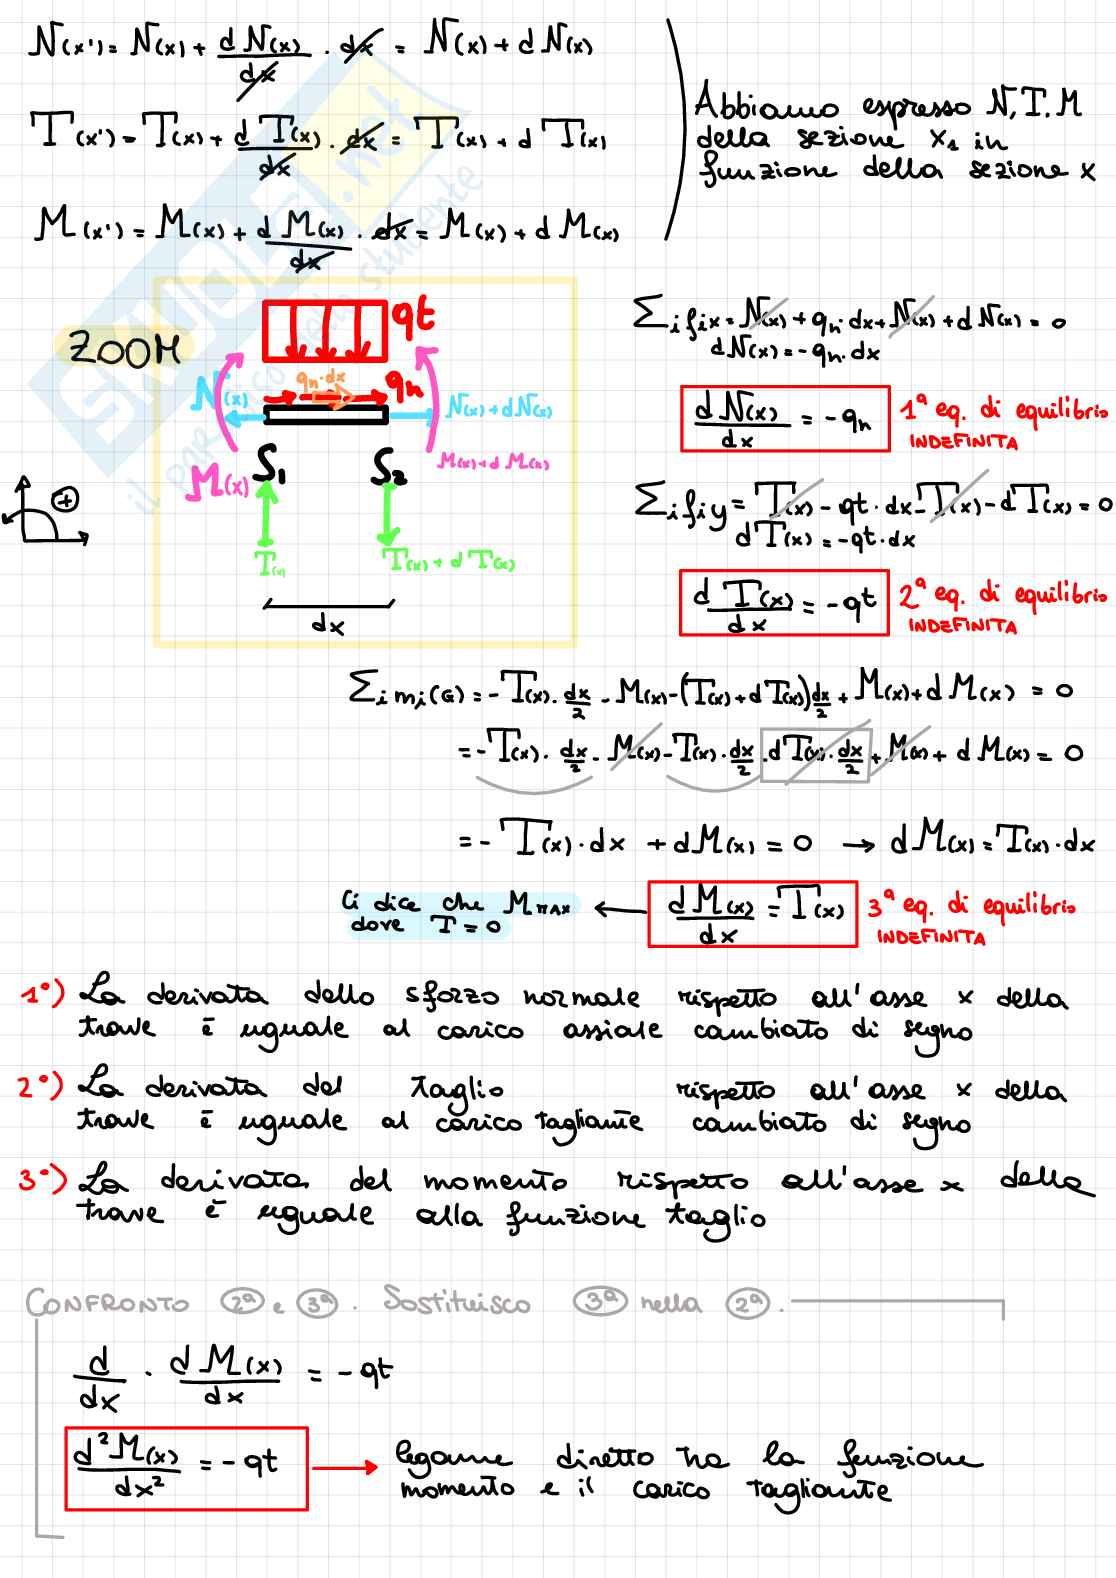 N(x') = N(x) + dN(x)/dx · dx = N(x) + dN(x)
T(x') = T(x) + dT(x)/dx · dx = T(x) + dT(x)
M(x') = M(x) + dM(x)/dx · dx = M(x) + dM(x)
Abbiamo espresso N, T, M
della sezione x₁ in
funzione della sezione x
SKUOLA.net
il paradiso dello studente
ZOOM
qt
qn·dx
qn
N(x)
N(x)+dN(x)
M(x)
S₁
S₂
M(x)+dM(x)
+
T(x)
T(x)+dT(x)
dx
Σi fix = N(x) + qn·dx + N(x) + dN(x) = 0
dN(x) = -qn·dx
dN(x)/dx = -qn
1ª eq. di equilibrio
INDEFINITA
Σi fiy = T(x) - qt·dx - T(x) - dT(x) = 0
dT(x) = -qt·dx
dT(x)/dx = -qt
2ª eq. di equilibrio
INDEFINITA
Σi mi(G) = -T(x)·dx/2 - M(x) - (T(x)+dT(x))dx/2 + M(x) + dM(x) = 0
= -T(x)·dx/2 - M(x) - T(x)·dx/2 - dT(x)·dx/2 + M(x) + dM(x) = 0
= -T(x)·dx + dM(x) = 0 → dM(x) = T(x)·dx
Ci dice che M MAX
dove T = 0
← dM(x)/dx = T(x)
3ª eq. di equilibrio
INDEFINITA
1°) La derivata dello sforzo normale rispetto all'asse x della
trave è uguale al carico assiale cambiato di segno
2°) La derivata del taglio rispetto all'asse x della
trave è uguale al carico tagliante cambiato di segno
3°) La derivata del momento rispetto all'asse x della
trave è uguale alla funzione taglio
CONFRONTO 2ª e 3ª. Sostituisco 3ª nella 2ª.
d/dx · dM(x)/dx = -qt
d²M(x)/dx² = -qt → legame diretto tra la funzione
momento e il carico tagliante